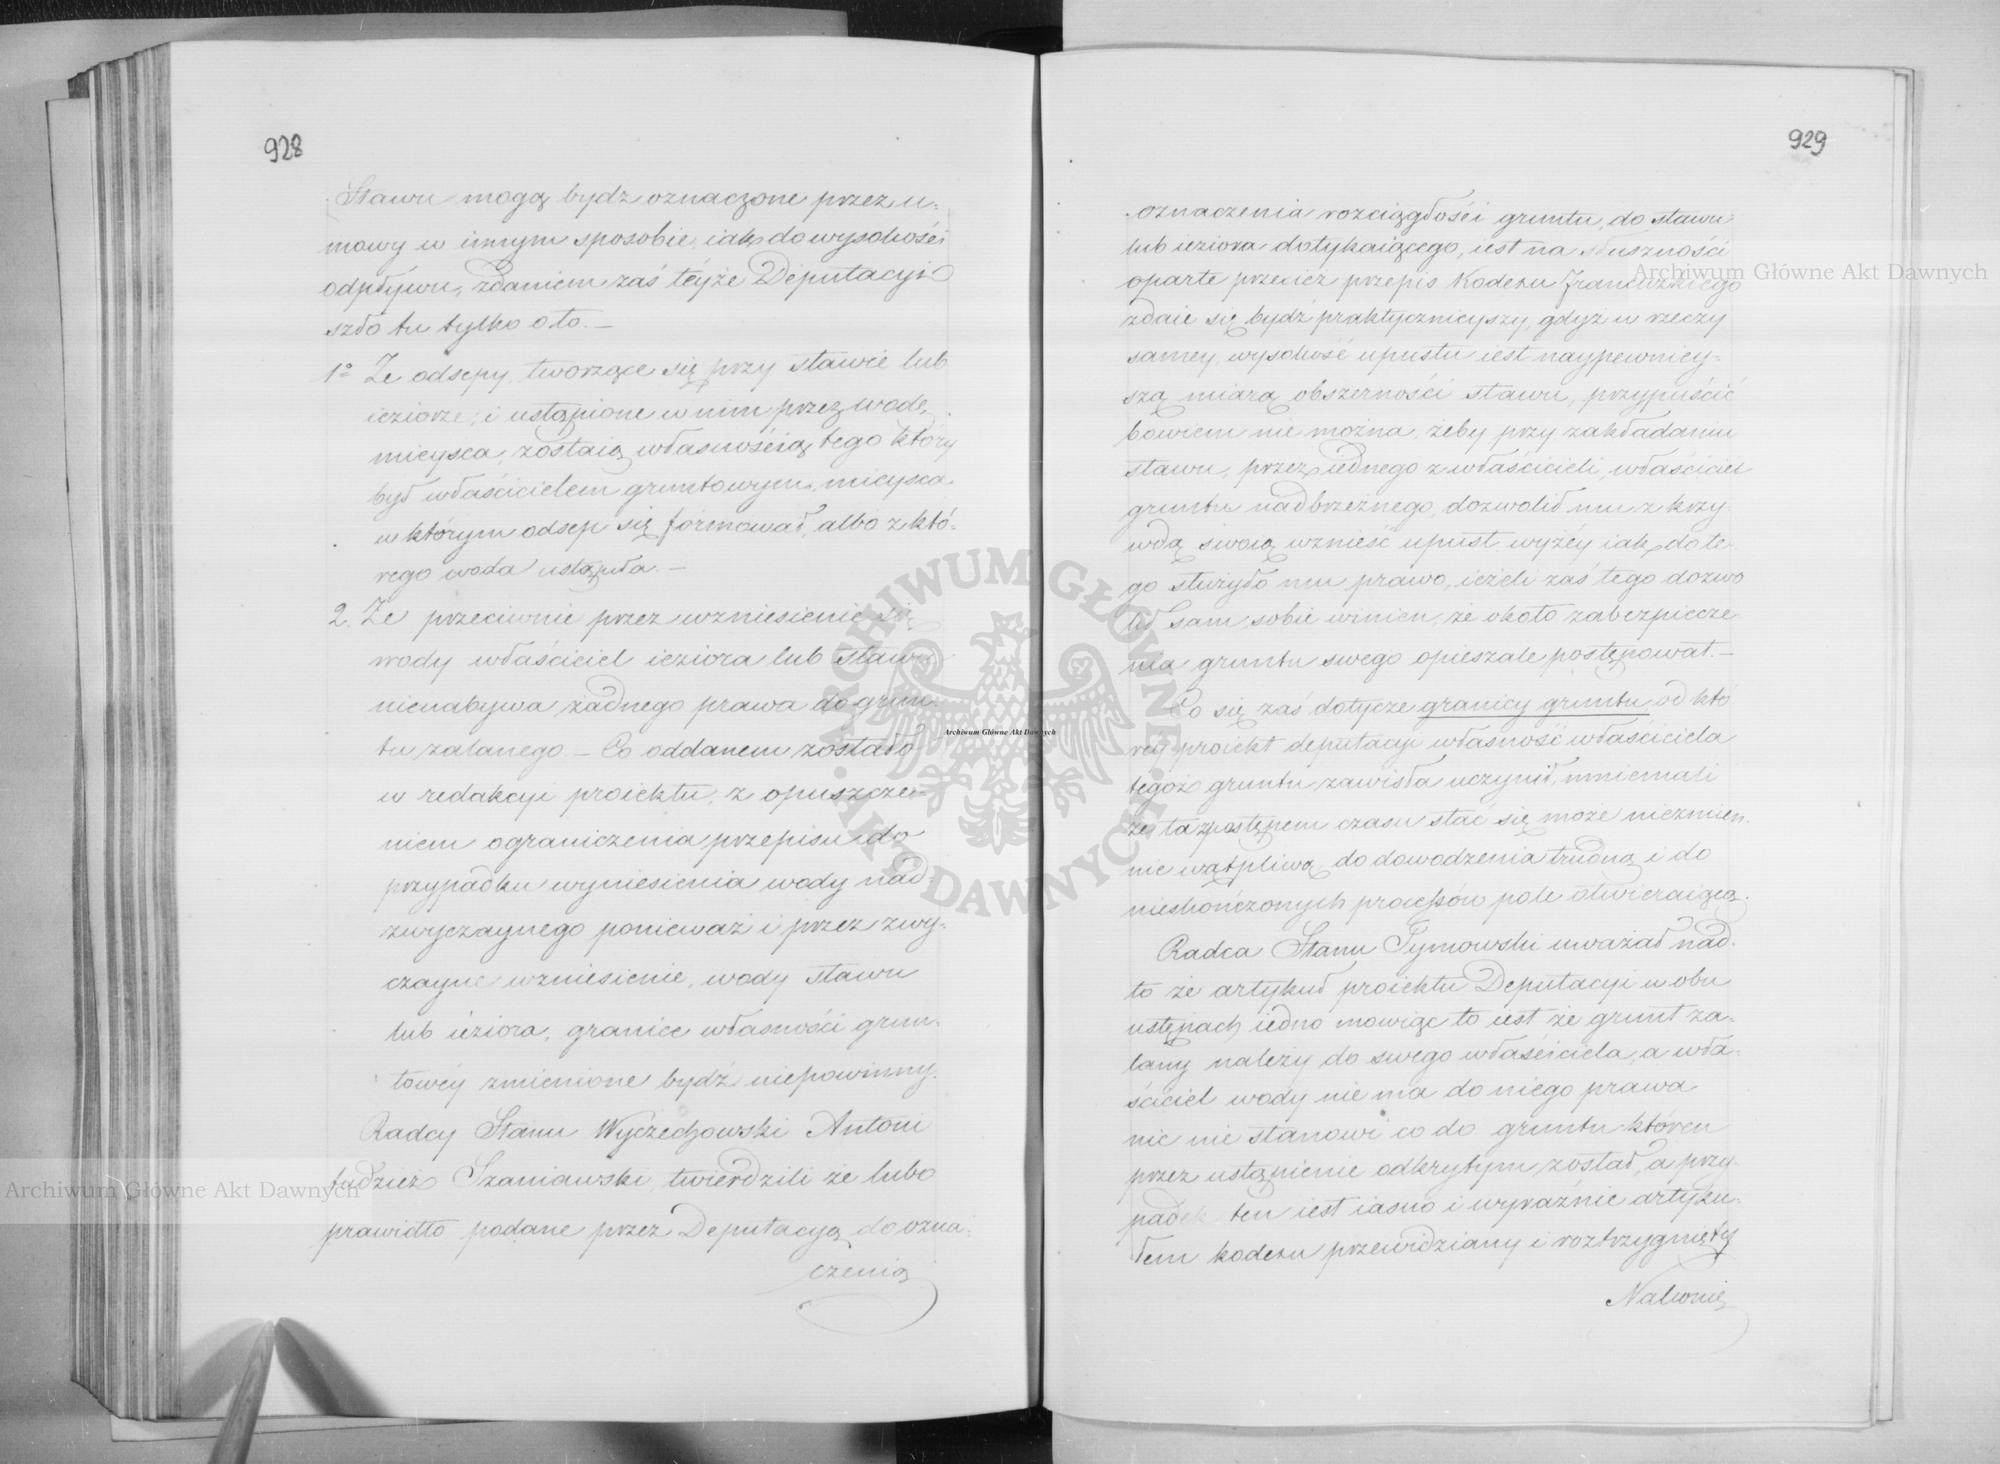 928
Stawu mogą bydź oznaczone przez u-
mowy w innym sposobie, iak do wysokości
odpływu, zdaniem zaś téyże Deputacyi
szło tu tylko o to. —
1º Że odsepy tworzące się przy stawie lub
ieziorze, i ustąpione w nim przez wodę,
mieysca, zostaią własnością tego który
był właścicielem gruntowym, mieysca
w którym odsep się formował, albo z któ-
rego woda ustąpiła. —
2. Że przeciwnie przez wzniesienie się
wody właściciel ieziora lub stawu
nienabywa żadnego prawa do grun-
tu zalanego — Co oddanem zostało
w redakcyi proiektu, z opuszcze-
niem ograniczenia przepisu do
przypadku wyniesienia wody nad-
zwyczaynego ponieważ i przez zwy-
czayne wzniesienie, wody stawu
lub ieziora, granice własności grun-
towéy zmienione bydź niepowinny.
Radcy Stanu Wyczechowski Antoni
tudzież Szaniawski, twierdzili że lubo
prawidło podane przez Deputacyą do ozna-
czenia
929
oznaczenia rozciągłości gruntu, do stawu
lub ieziora dotykaiącego, iest na słuszności
oparte przecież przepis Kodexu Francuzkiego
zdaie się bydź praktycznieyszy, gdyż w rzeczy
samey, wysokość upustu iest naypewniey-
szą miarą obszerności stawu, przypuścić
bowiem nie można, żeby przy zakładaniu
stawu, przez iednego z właścicieli, właściciel
gruntu nadbrzeżnego, dozwolił mu z krzy-
wdą swoią wznieść upust wyżéy iak do te-
go służyło mu prawo, ieżeli zaś tego dozwo
lił sam sobie winien, że około zabezpiecze
nia gruntu swego opieszale postępował. —
Co się zaś dotycze granicy gruntu od któ
rey proiekt deputacyi własność właściciela
tegoż gruntu zawisła uczynił, mniemali
że ta z postępem czasu stać się może niezmier-
nie wątpliwą, do dowodzenia trudną i do
nieskończonych processów pole otwieraiącą.
Radca Stanu Tymowski uważał nad-
to że artykuł proiektu Deputacyi w obu
ustępach iedno mówiąc to iest że grunt za-
lany należy do swego właściciela, a wła-
ściciel wody nie ma do niego prawa
nic nie stanowi co do gruntu któren
przez ustąpienie odkrytym został, a przy-
padek ten iest iasno i wyraźnie artyku-
łem kodexu przewidziany i roztrzygnięty
Na koniec
Archiwum Główne Akt Dawnych
Archiwum Główne Akt Dawnych
Archiwum Główne Akt Dawnych
ARCHIWUM GŁÓWNE AKT DAWNYCH